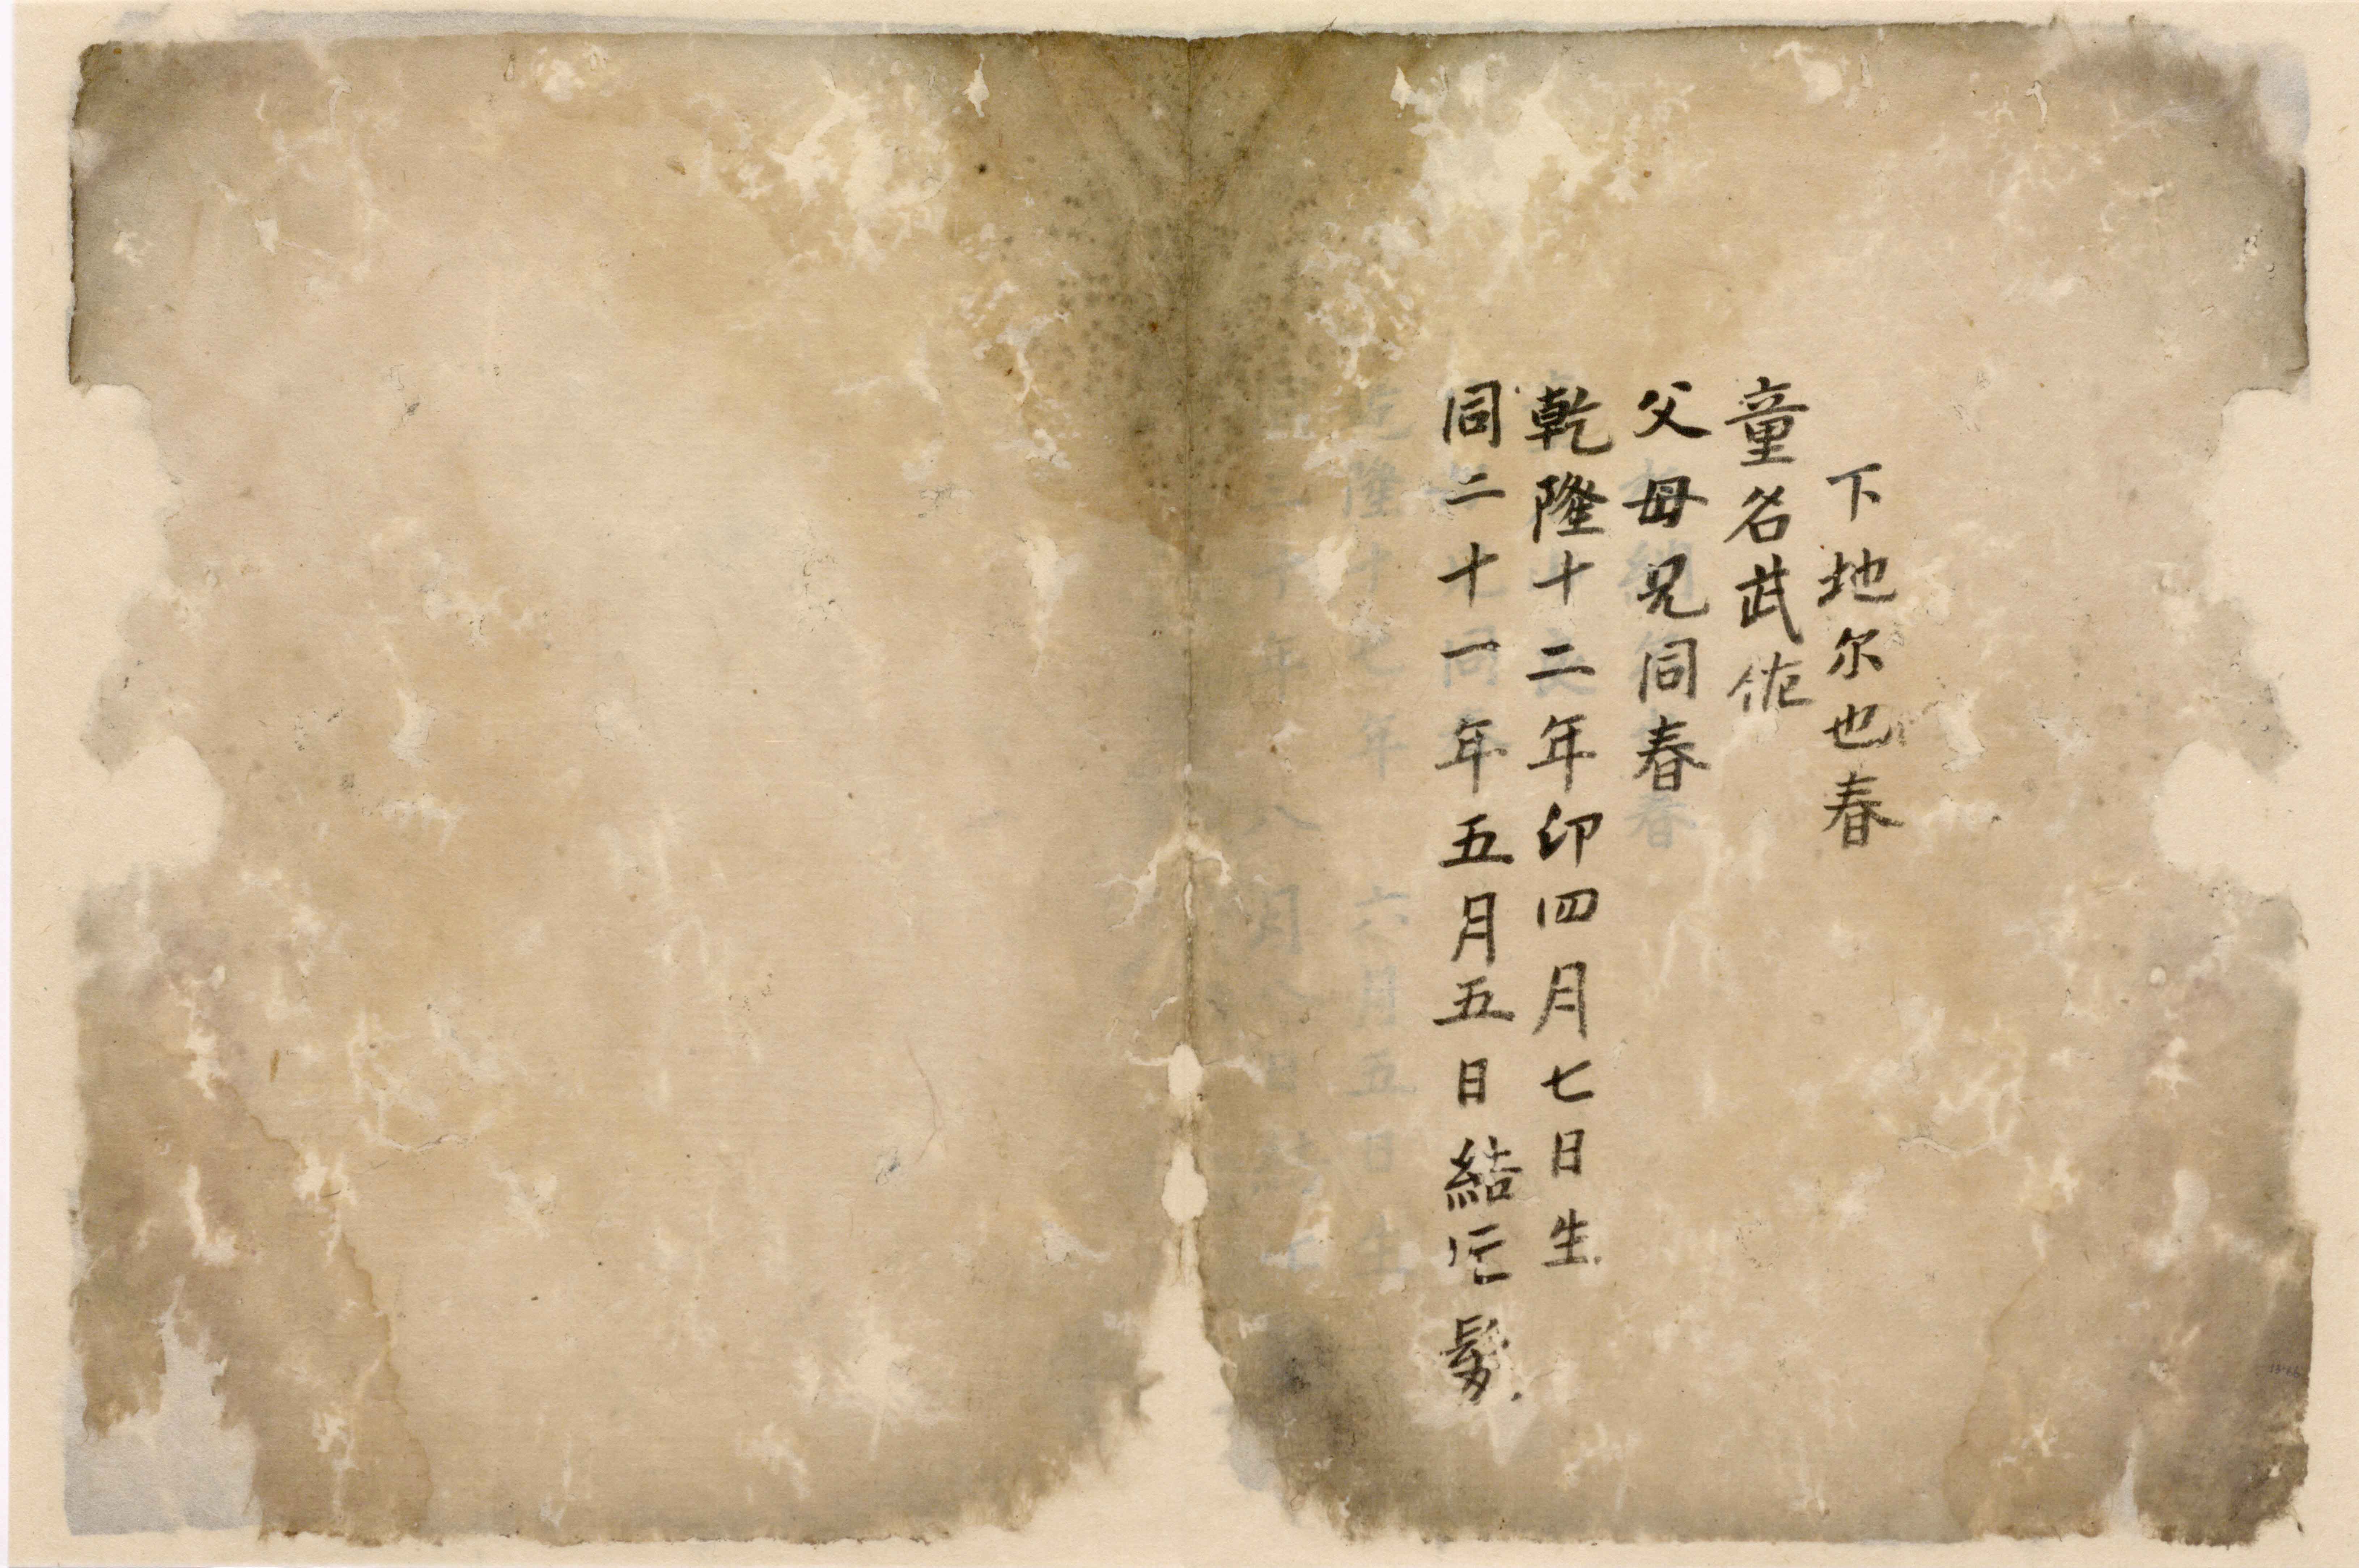 下地尔也春
童名武佐
父母兄同春
乾隆十二年卯四月七日生
同二十一年五月五日結髮